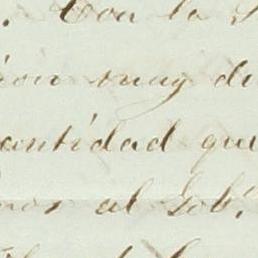 . Con la
ion muy di
antidad que
nos al Gob.